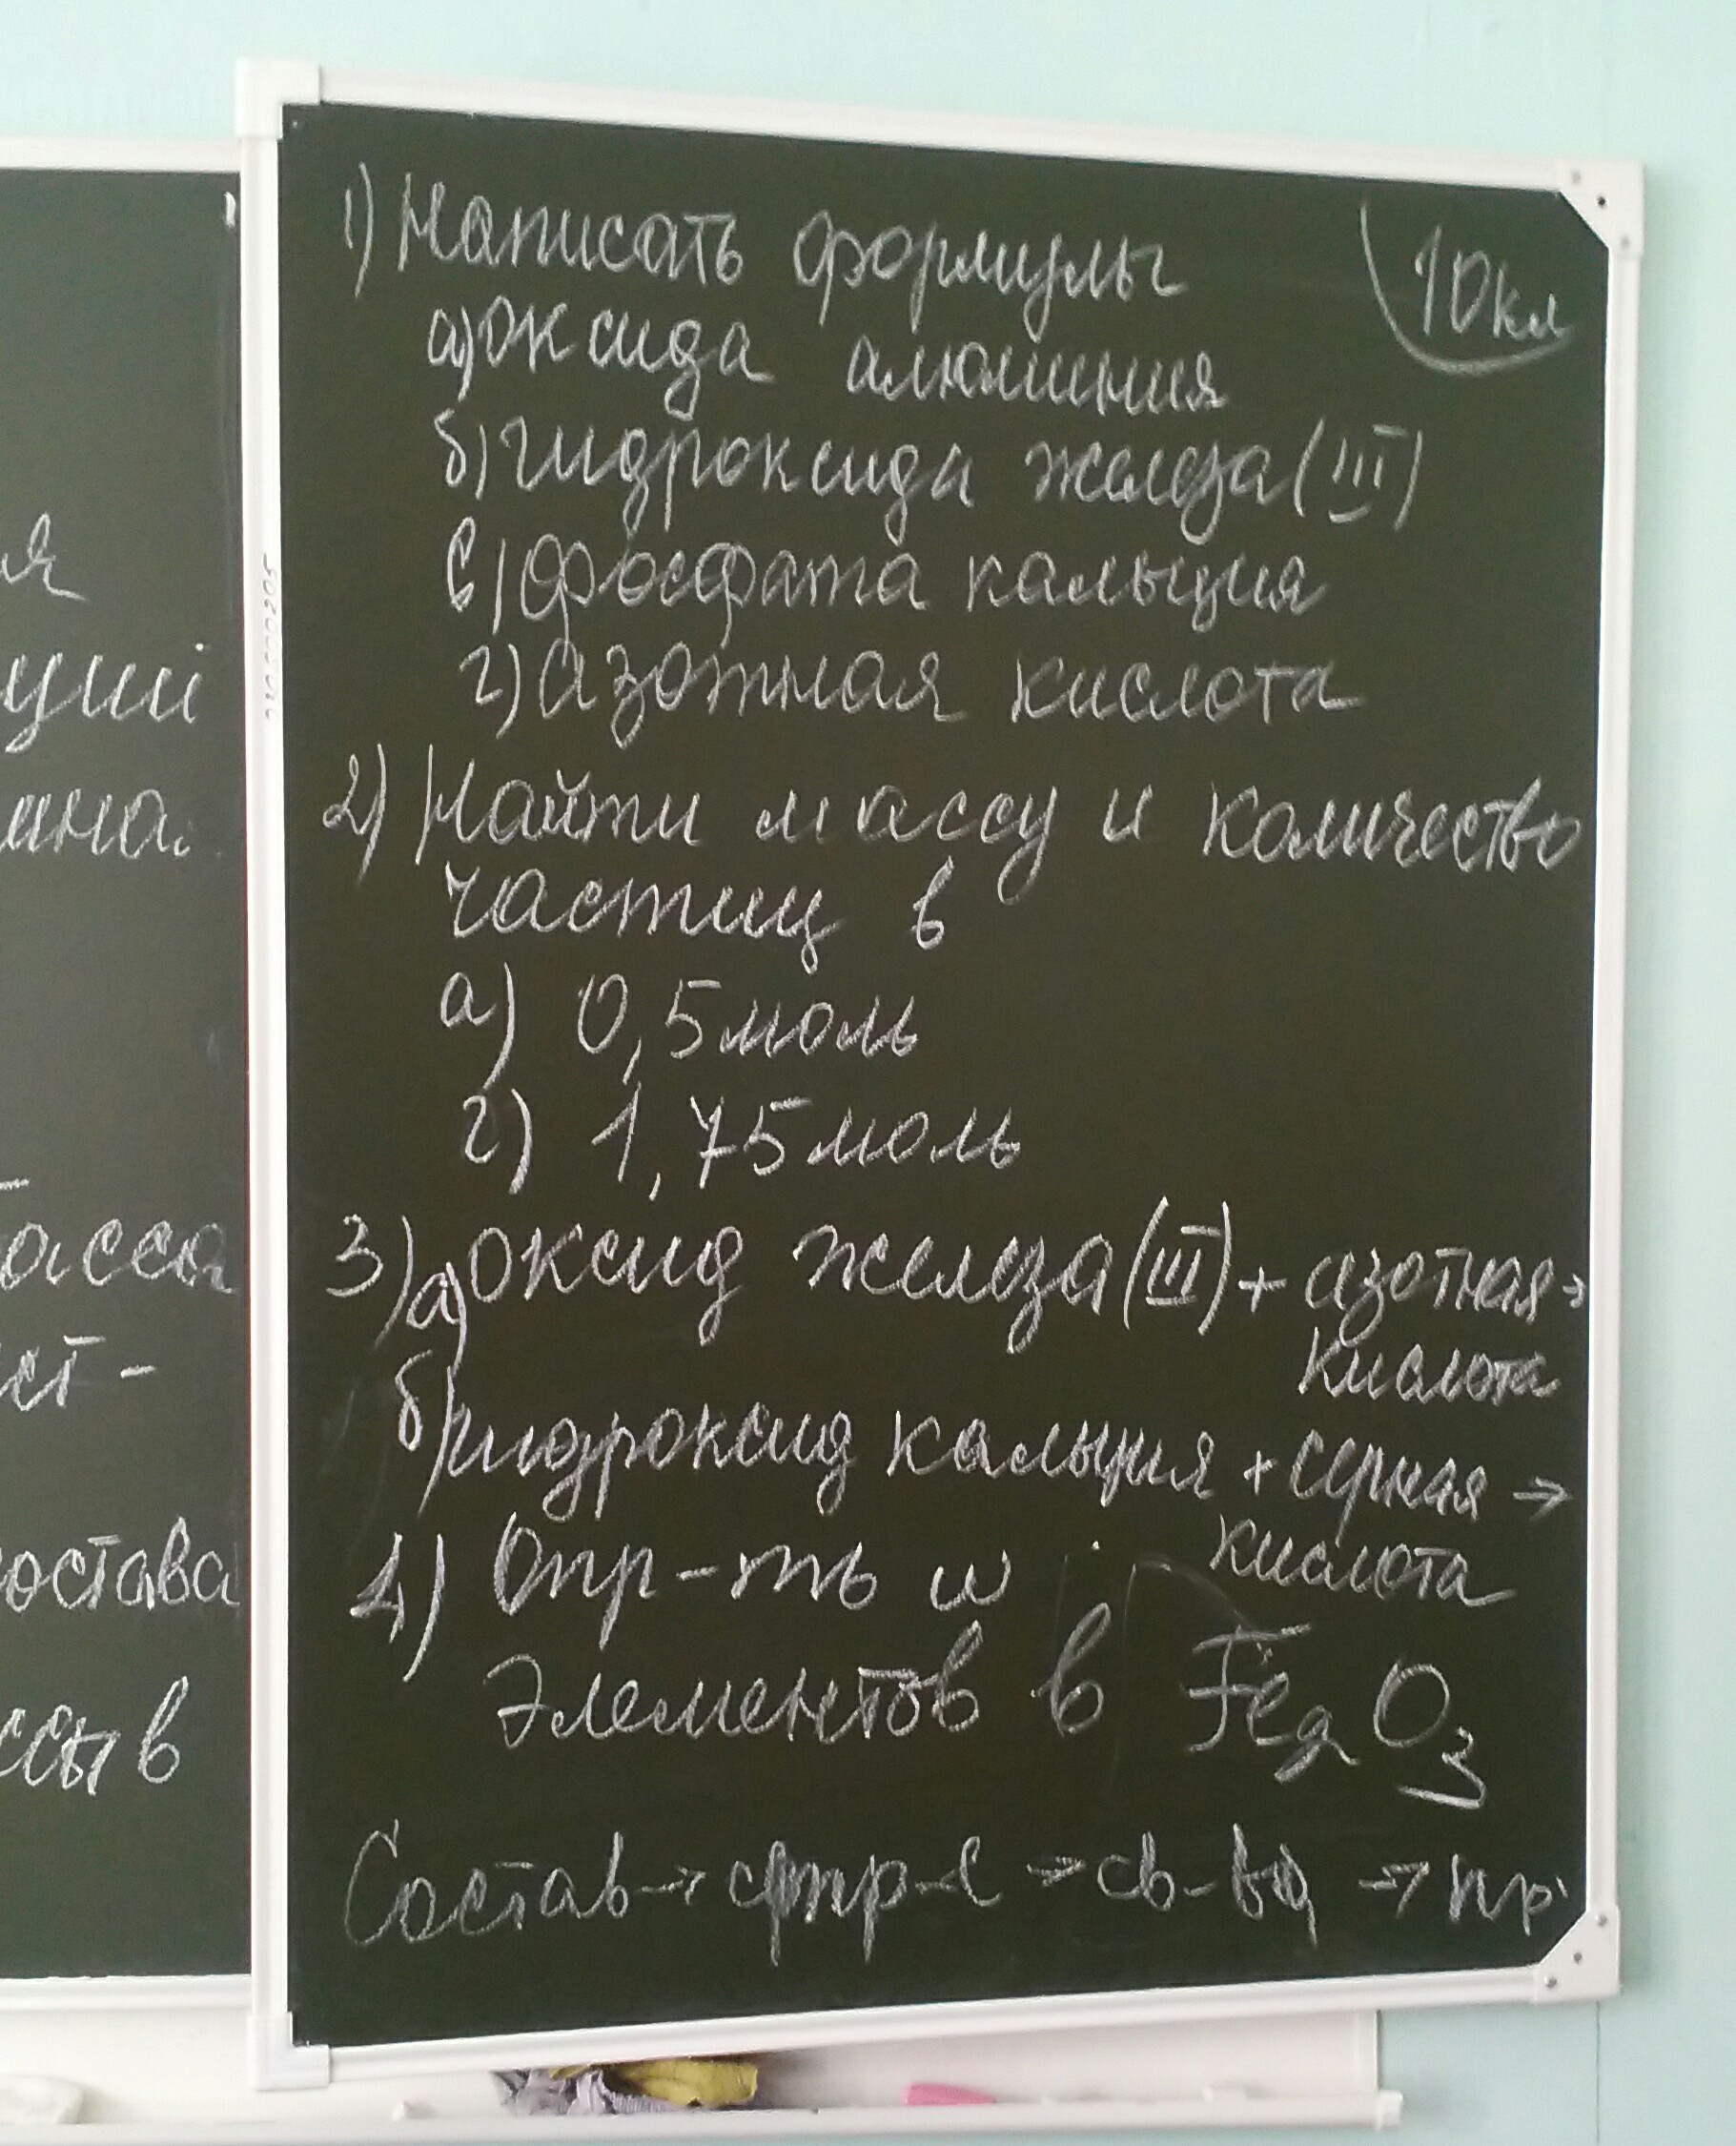 я
ущий
мна.
асса
ст-
остава
ссы в
10кл
1) Написать формулы
а) оксида алюминия
б) гидроксида железа (III)
в) фосфата кальция
г) азотная кислота
2) Найти массу и количество
частиц в
а) 0,5 моль
г) 1,75 моль
3) а) оксид железа (III) + азотная →
кислота
б) гидроксид кальция + серная →
кислота
4) Опр-ть ω
элементов в Fe₂O₃
Состав → стр-е → св-ва → пр